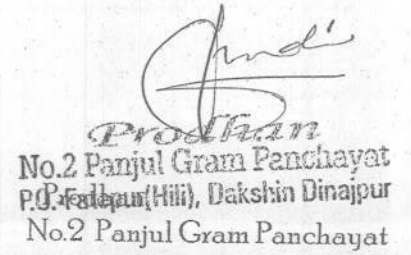 Prodhan
No.2 Panjul Gram Panchayat
P.O. (Hili), Dakshin Dinajpur
No.2 Panjul Gram Panchayat